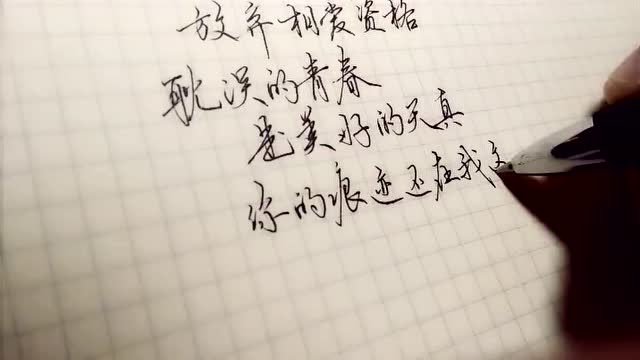 放弃相爱资格
耽误的青春
是美好的天真
你的痕迹还在我